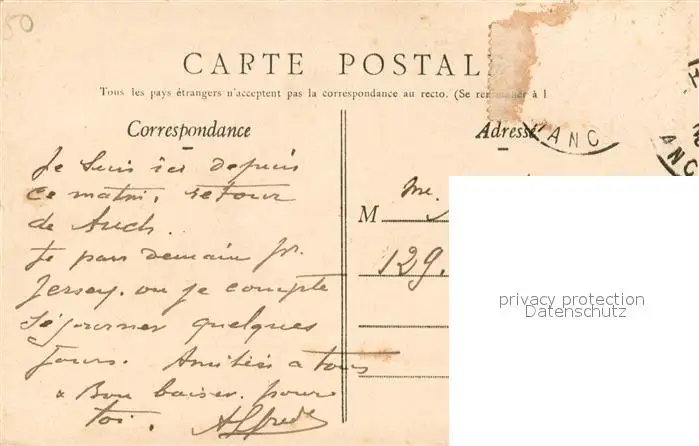 50
CARTE POSTAL
Tous les pays étrangers n'acceptent pas la correspondance au recto. (Se renseigner à l
Correspondance
Adresse
ANC
ANC
Je suis ici depuis
ce matin, retour
de Auch.
Je pars demain pr.
Jersey. ou je compte
séjourner quelques
jours. Amitiés a tous
& Bon baiser. pour
toi. Alfred
M
129.
privacy protection
Datenschutz